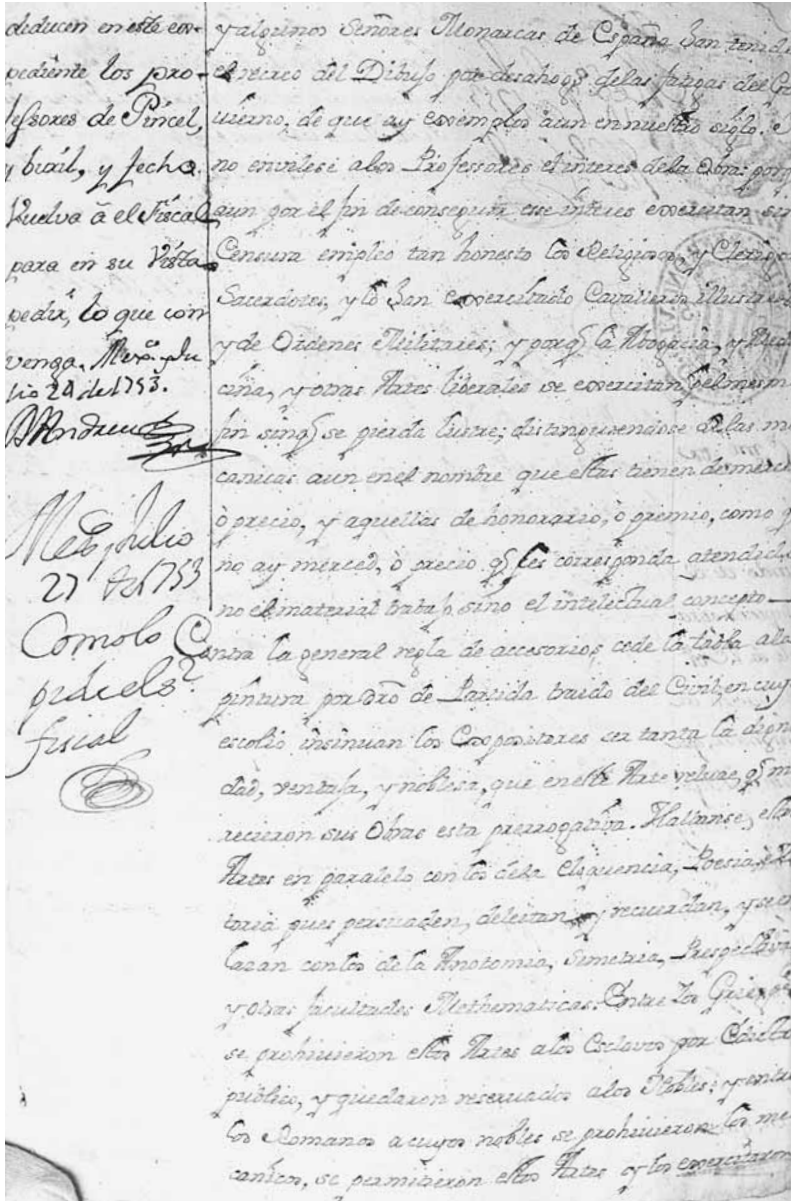 deducen en este ex-
pediente los pro-
fessores de Pincel,
y buril, y fecha
Vuelva â el Fiscal
para en su Vista
pedir, lo que con
venga. Mexº. y Ju
lio 24 de 1753.
Mexº, y Julio
27 de 1753
Como lo
pide el sº.
fiscal
y algunos Señores Monarcas de España han tenido
el recreo del Dibujo por desahogo de las fatigas del Go
vierno, de que ay exemplos aun en nuestro siglo.
no envilese a los Professores el interes de la Obra: porq
aun por el fin de conseguir ese interes exercitan sin
Censura empleo tan honesto los Religiosos, y Clerigos
Sacerdotes, y lo han exercitado Cavalleros illustres
y de Ordenes Militares; y porq la Abogacia, y Medi
cina, y otras Artes liberales se exercitan pel mesm
fin sinq se pierda lustre; distinguiendose de las me
canicas aun en el nombre que estas tienen de merced
ò precio, y aquellas de honorario, ò premio, como q
no ay merced, ò precio q les corresponda atendido
no el material trabajo, sino el intelectual concepto
Contra la general regla de accesorios, cede la tabla a la
pintura por dro de Partida traido del Civil, en cuyo
escolio insinuan los Expositores ser tanta la digni
dad, ventaja, y noblesa, que en este Arte reluce, q me
recieron sus Obras esta prerrogativa. Hallanse, estas
Artes en paralelo con los de la Eloquencia, Poesia,
toria pues persuaden, deleitan y recuerdan, y se en
lazan con los de la Anotomia, Simetria, Prespectiva
y otras facultades Methematicas. Entre los Griegos
se prohivieron estos Artes a los Esclavos por Edicto
publico, y quedaron reservados a los Nobles: y entre
los Romanos a cuyos nobles se prohivieron los me
canicos, se permitieron estos Artes y los exercitaron